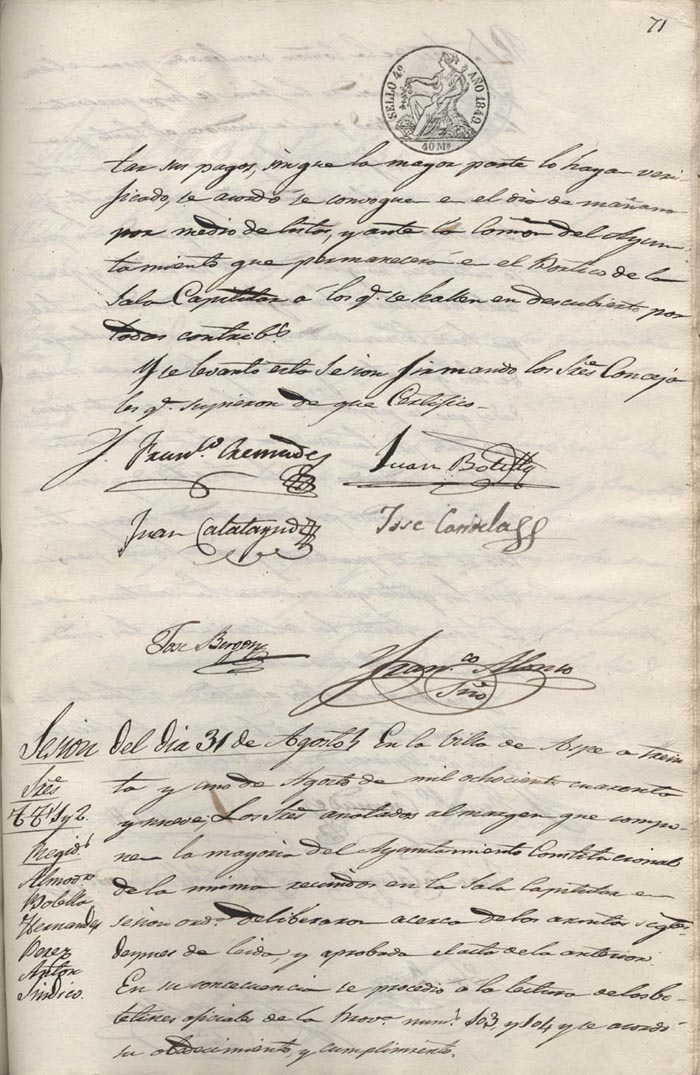 71
SELLO 4º AÑO 1849
40 Ms
tar sus pagos, sin que la mayor parte lo haya veri
ficado, se acordó se convoque en el dia de mañana
por medio de listas, y ante la Comon del Ayun
tamiento que permanecerá en el Portico de la
Sala Capitular a los qe se hallen en descubierto por
todas contribs
Y se levantó esta Sesion firmando los Sres Conceja
les qe supieron de que Certifico.
Franco Cremades
Juan Botella
Juan Calatayud
Jose
Jose
Franco
Srio
Sesion del dia 31 de Agosto
En la Villa de Aspe a Trein
ta y uno de Agosto de mil ochocientos cuarenta
y nueve; Los Sres anotados al margen que compo
nen la mayoria del Ayuntamiento Constitucional
de la misma reunidos en la Sala Capitular en
sesion orda deliberaron acerca de los asuntos sigtes
despues de leida y aprobada el acta de la anterior.
En su consecuencia se procedio a la lectura de los bo
letines oficiales de la Prova nums 103, y 104, y se acordó
su obedecimiento, y cumplimiento.
Sres
TTes 1 y 2.
Regids
Almodr
Botella
Hernandez
Perez
Antón
Sindico.